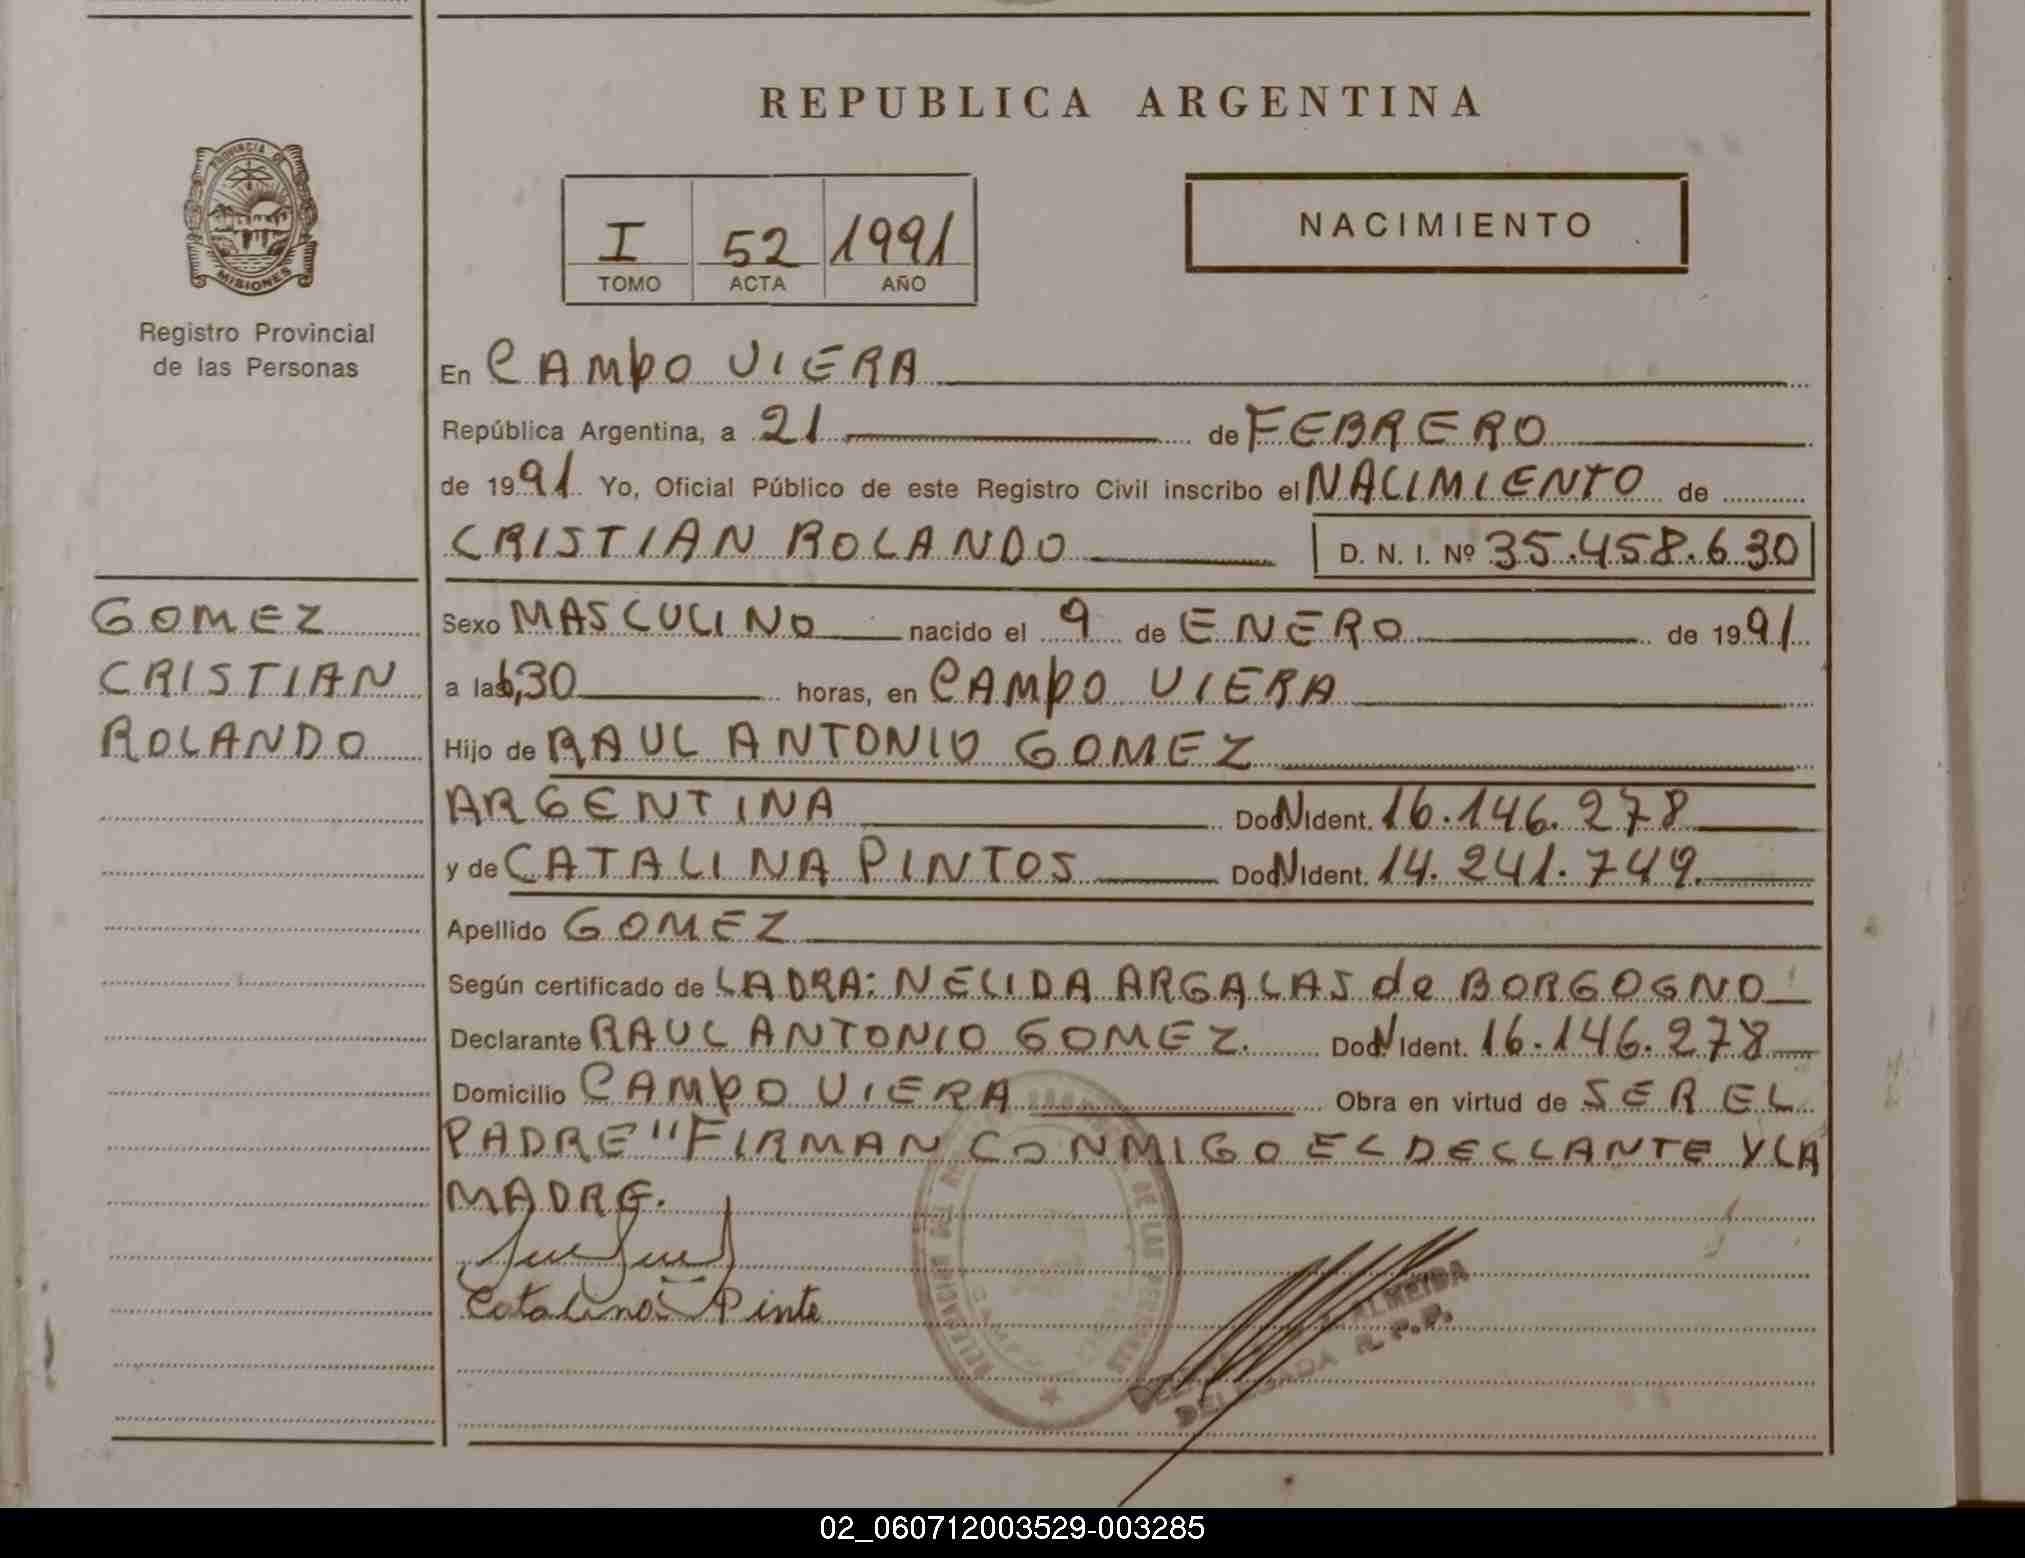 REPUBLICA ARGENTINA
PROVINCIA DE
MISIONES
Registro Provincial
de las Personas
I 52 1991
TOMO ACTA AÑO
NACIMIENTO
En CAMPO VIERA
República Argentina, a 21 de FEBRERO
de 1991 Yo, Oficial Público de este Registro Civil inscribo el NACIMIENTO de
CRISTIAN ROLANDO D. N. I. Nº 35.458.630
GOMEZ
CRISTIAN
ROLANDO
Sexo MASCULINO nacido el 9 de ENERO de 1991
a las 6,30 horas, en CAMPO VIERA
Hijo de RAUL ANTONIO GOMEZ
ARGENTINA Doc. N Ident. 16.146.278
y de CATALINA PINTOS Doc. N Ident. 14.241.749.
Apellido GOMEZ
Según certificado de LA DRA: NELIDA ARGALAS de BORGOGNO
Declarante RAUL ANTONIO GOMEZ. Doc. N Ident. 16.146.278
Domicilio CAMPO VIERA Obra en virtud de SER EL
PADRE "FIRMAN CONMIGO EL DECLLANTE Y LA
MADRE.
Catalina Pinto
DELEGACION DEL REGISTRO DE LAS PERSONAS
ALMEIDA
DELEGADA R.P.P.
02_060712003529-003285